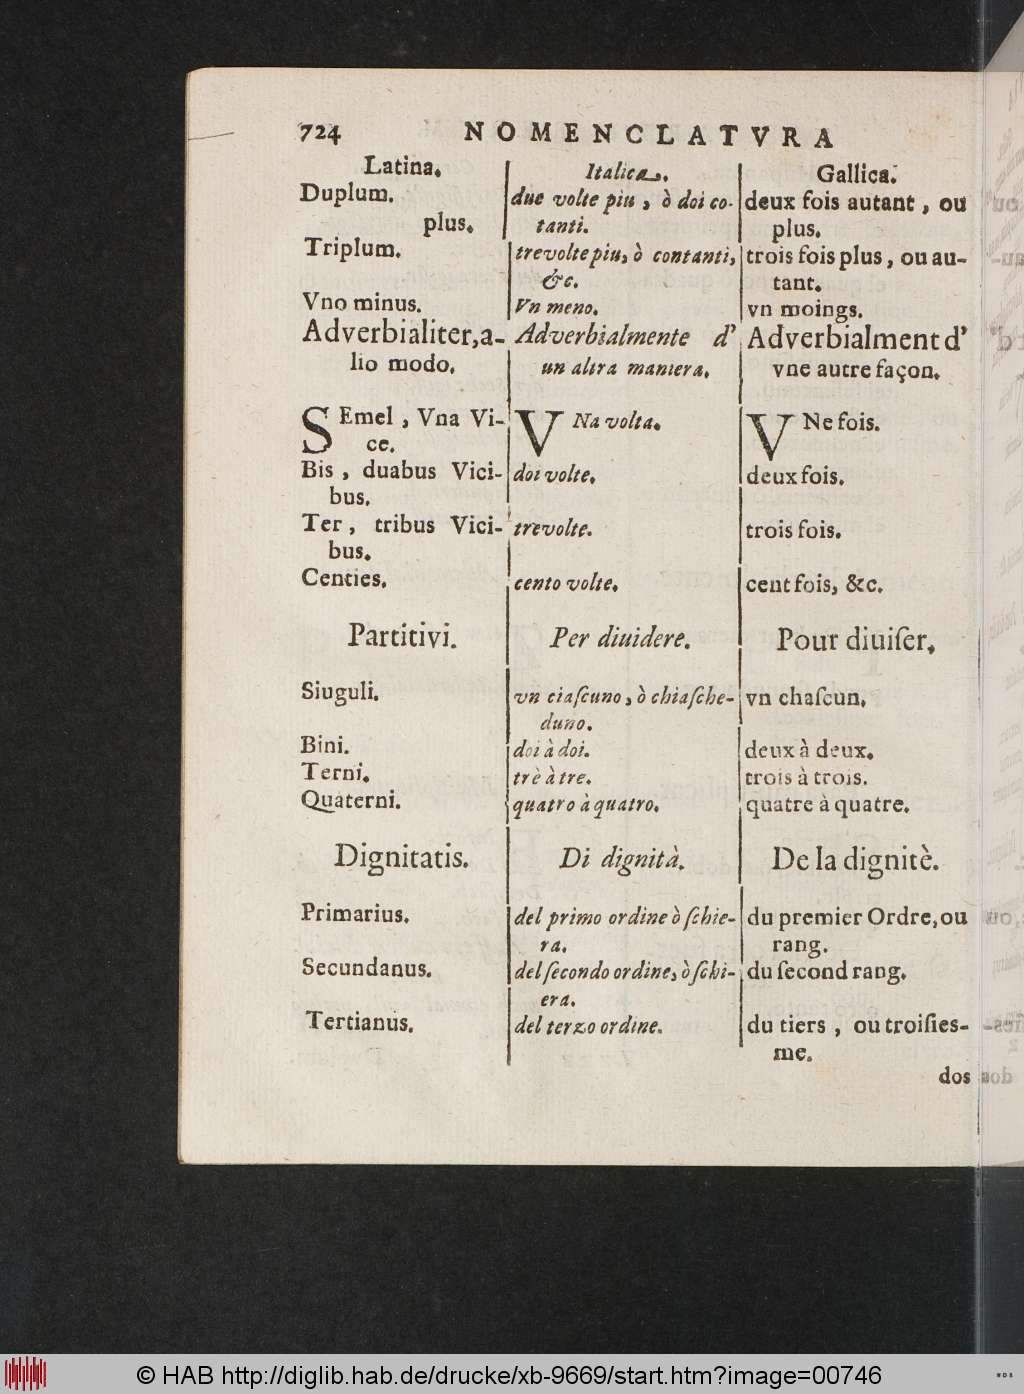 724 NOMENCLATVRA
Latina.
Duplum.
plus.
Triplum.
Vno minus.
Adverbialiter, a-
lio modo.
SEmel, Vna Vi-
ce.
Bis, duabus Vici-
bus.
Ter, tribus Vici-
bus.
Centies.
Partitivi.
Siuguli.
Bini.
Terni.
Quaterni.
Dignitatis.
Primarius.
Secundanus.
Tertianus.
Italica.
due volte piu, ò doi co-
tanti.
trevolte piu, ò contanti,
&c.
Vn meno.
Adverbialmente d'
un altra maniera.
VNa volta.
doi volte.
trevolte.
cento volte.
Per diuidere.
vn ciaſcuno, ò chiaſche-
duno.
doi à doi.
trè à tre.
quatro à quatro.
Di dignità.
del primo ordine ò ſchie-
ra.
del ſecondo ordine, ò ſchi-
era.
del terzo ordine.
Gallica.
deux fois autant, ou
plus.
trois fois plus, ou au-
tant.
vn moings.
Adverbialment d'
vne autre façon.
VNe fois.
deux fois.
trois fois.
cent fois, &c.
Pour diuiſer.
vn chaſcun.
deux à deux.
trois à trois.
quatre à quatre.
De la dignitè.
du premier Ordre, ou
rang.
du ſecond rang.
du tiers, ou troiſies-
me.
dos
© HAB http://diglib.hab.de/drucke/xb-9669/start.htm?image=00746